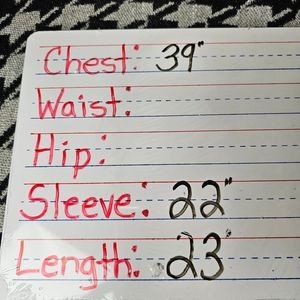 Chest: 39"
Waist:
Hip:
Sleeve: 22"
Length: 23"